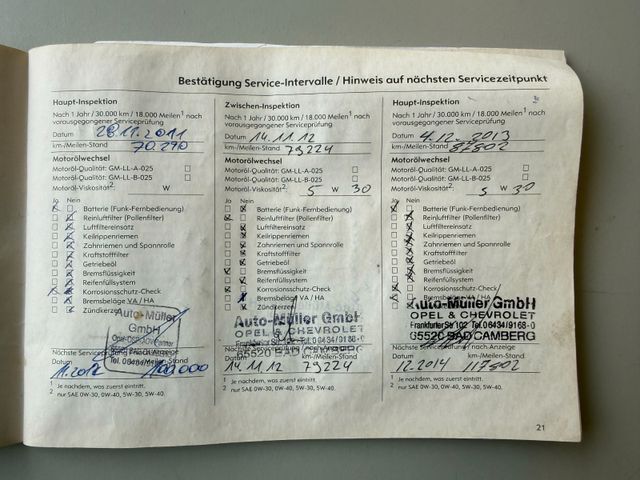 Bestätigung Service-Intervalle / Hinweis auf nächsten Servicezeitpunkt
Haupt-Inspektion
Nach 1 Jahr / 30.000 km / 18.000 Meilen¹ nach
vorausgegangener Serviceprüfung
Datum 28.11.2011
km-/Meilen-Stand 70.290
Motorölwechsel
Motoröl-Qualität: GM-LL-A-025
Motoröl-Qualität: GM-LL-B-025
Motoröl-Viskosität² W
Ja Nein
Batterie (Funk-Fernbedienung)
Reinluftfilter (Pollenfilter)
Luftfiltereinsatz
Keilrippenriemen
Zahnriemen und Spannrolle
Kraftstofffilter
Getriebeöl
Bremsflüssigkeit
Reifenfüllsystem
Korrosionsschutz-Check
Bremsbeläge VA / HA
Zündkerzen
Auto-Müller
GmbH
Nächste
Datum km-/Meilen-Stand
11.2012 100.000
1 Je nachdem, was zuerst eintritt.
2 nur SAE 0W-30, 0W-40, 5W-30, 5W-40.
Zwischen-Inspektion
Nach 1 Jahr / 30.000 km / 18.000 Meilen¹ nach
vorausgegangener Serviceprüfung
Datum 14.11.12
km-/Meilen-Stand 79224
Motorölwechsel
Motoröl-Qualität: GM-LL-A-025
Motoröl-Qualität: GM-LL-B-025
Motoröl-Viskosität² 5 W 30
Ja Nein
Batterie (Funk-Fernbedienung)
Reinluftfilter (Pollenfilter)
Luftfiltereinsatz
Keilrippenriemen
Zahnriemen und Spannrolle
Kraftstofffilter
Getriebeöl
Bremsflüssigkeit
Reifenfüllsystem
Korrosionsschutz-Check
Bremsbeläge VA / HA
Zündkerzen
Auto-Müller GmbH
OPEL & CHEVROLET
Frankfurter Str. 102 Tel. 06434/9168-0
65520 BAD CAMBERG
Datum
14.11.12 79224
1 Je nachdem, was zuerst eintritt.
2 nur SAE 0W-30, 0W-40, 5W-30, 5W-40.
Haupt-Inspektion
Nach 1 Jahr / 30.000 km / 18.000 Meilen¹ nach
vorausgegangener Serviceprüfung
Datum 4.12.2013
km-/Meilen-Stand 87802
Motorölwechsel
Motoröl-Qualität: GM-LL-A-025
Motoröl-Qualität: GM-LL-B-025
Motoröl-Viskosität² 5 W 30
Ja Nein
Batterie (Funk-Fernbedienung)
Reinluftfilter (Pollenfilter)
Luftfiltereinsatz
Keilrippenriemen
Zahnriemen und Spannrolle
Kraftstofffilter
Getriebeöl
Bremsflüssigkeit
Reifenfüllsystem
Korrosionsschutz-Check
Bremsbeläge VA / HA
Auto-Müller GmbH
OPEL & CHEVROLET
Frankfurter Str. 102 Tel. 06434/9168-0
65520 BAD CAMBERG
Nächste Serviceprüfung nach Anzeige
Datum km-/Meilen-Stand
12.2014 117802
1 Je nachdem, was zuerst eintritt.
2 nur SAE 0W-30, 0W-40, 5W-30, 5W-40.
21